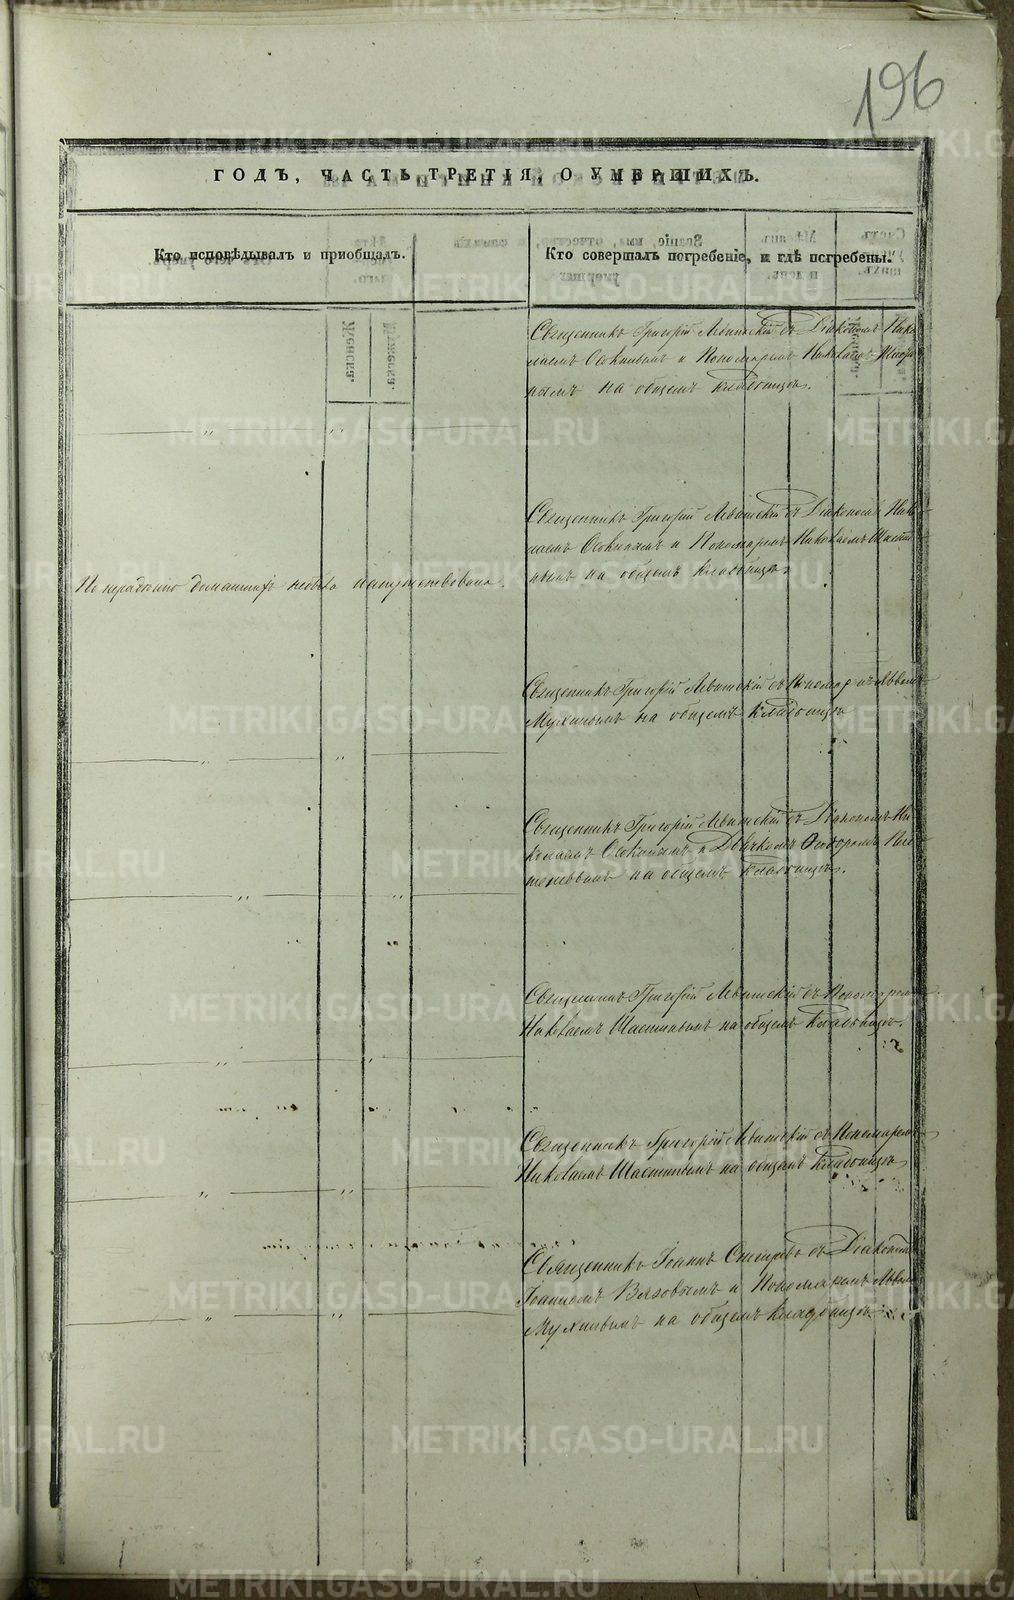 196
ГОДЪ, ЧАСТЬ ТРЕТІЯ, О УМЕРШИХЪ.
Кто исповѣдывалъ и приобщалъ.
Кто совершалъ погребеніе, и гдѣ погребены.
Священникъ Григорій Левитскій съ Діакономъ Нико
лаемъ Осокинымъ и Пономаремъ Николаемъ
нымъ на общемъ кладбищѣ.
Священникъ Григорій Левитскій съ Діакономъ Нико
лаемъ Осокинымъ и Пономаремъ Николаемъ Шасти
нымъ на общемъ кладбищѣ.
По нерадѣнію домашнихъ небыла напутствована.
Священникъ Григорій Левитскій съ Пономаремъ Львомъ
Мухинымъ на общемъ кладбищѣ
Священникъ Григорій Левитскій съ Діакономъ Ни
колаемъ Осокинымъ и Дьячкомъ Ѳеодоромъ
на общемъ кладбищѣ.
Священникъ Григорій Левитскій съ Пономаремъ
Николаемъ Шастинымъ на общемъ кладбищѣ.
Священникъ Григорій Левитскій съ Пономаремъ
Николаемъ Шастинымъ на общемъ кладбищѣ
Священникъ Іоаннъ съ Діакономъ
Іоанномъ Вязовымъ и Пономаремъ Львомъ
Мухинымъ на общемъ кладбищѣ
METRIKI.GASO-URAL.RU